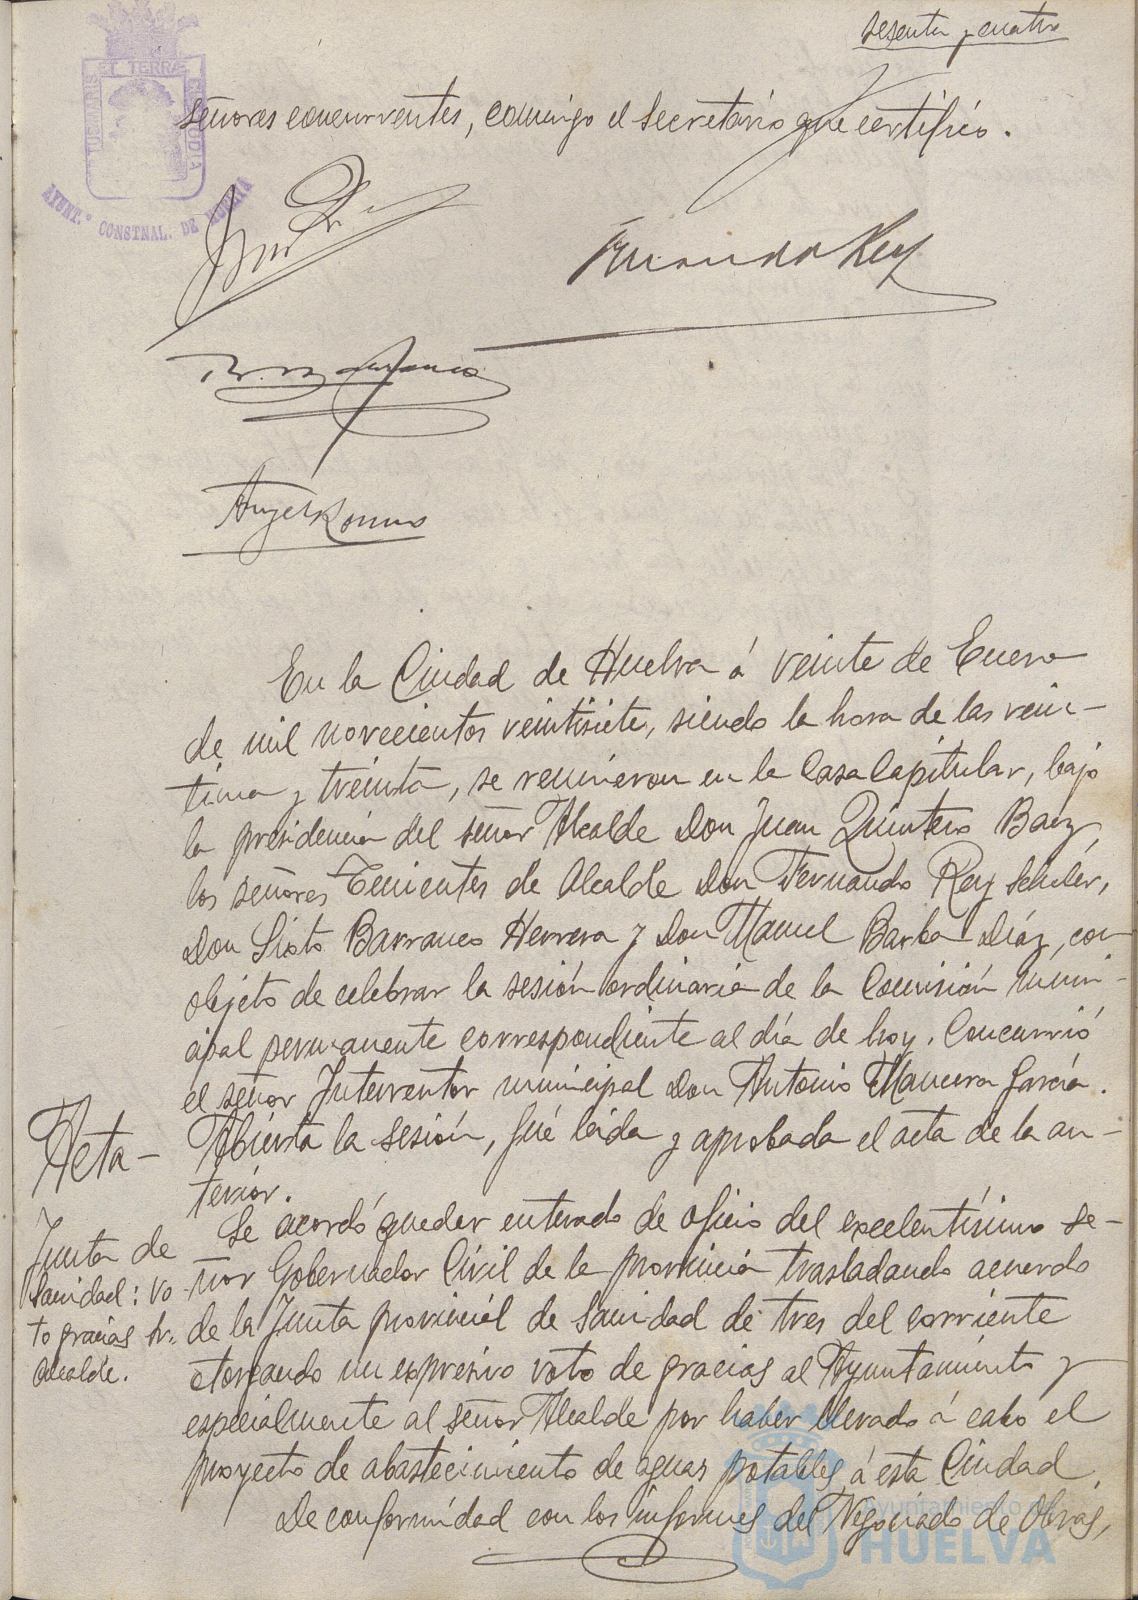 sesenta y cuatro
PORTUS MARIS ET TERRÆ CUSTODIA
AYUNT.º CONSTNAL. DE HUELVA
señores concurrentes, conmigo el Secretario que certifico.
Fernando Rey
Angel Romero
En la Ciudad de Huelva á veinte de Enero
de mil novecientos veintisiete, siendo la hora de las vein-
tiuna y treinta, se reunieron en la Casa Capitular, bajo
la presidencia del señor Alcalde Don Juan Quintero Baez,
los señores Tenientes de Alcalde Don Fernando Rey Schuler,
Don Sixto Barranco Herrera y Don Manuel Barba Díaz, con
objeto de celebrar la sesión ordinaria de la Comisión muni-
cipal permanente correspondiente al día de hoy. Concurrió
el señor Interventor municipal Don Antonio Mancera García.
Acta-
Abierta la sesión, fué leida y aprobada el acta de la an-
terior.
Junta de
Sanidad: vo-
to gracias Sr.
Alcalde.
Se acordó quedar enterado de oficio del excelentísimo se-
ñor Gobernador Civil de la provincia trasladando acuerdo
de la Junta provincial de Sanidad de tres del corriente
otorgando un expresivo voto de gracias al Ayuntamiento y
especialmente al señor Alcalde por haber llevado á cabo el
proyecto de abastecimiento de aguas potables á esta Ciudad.
De conformidad con los informes del Negociado de Obras,
Ayuntamiento de
HUELVA